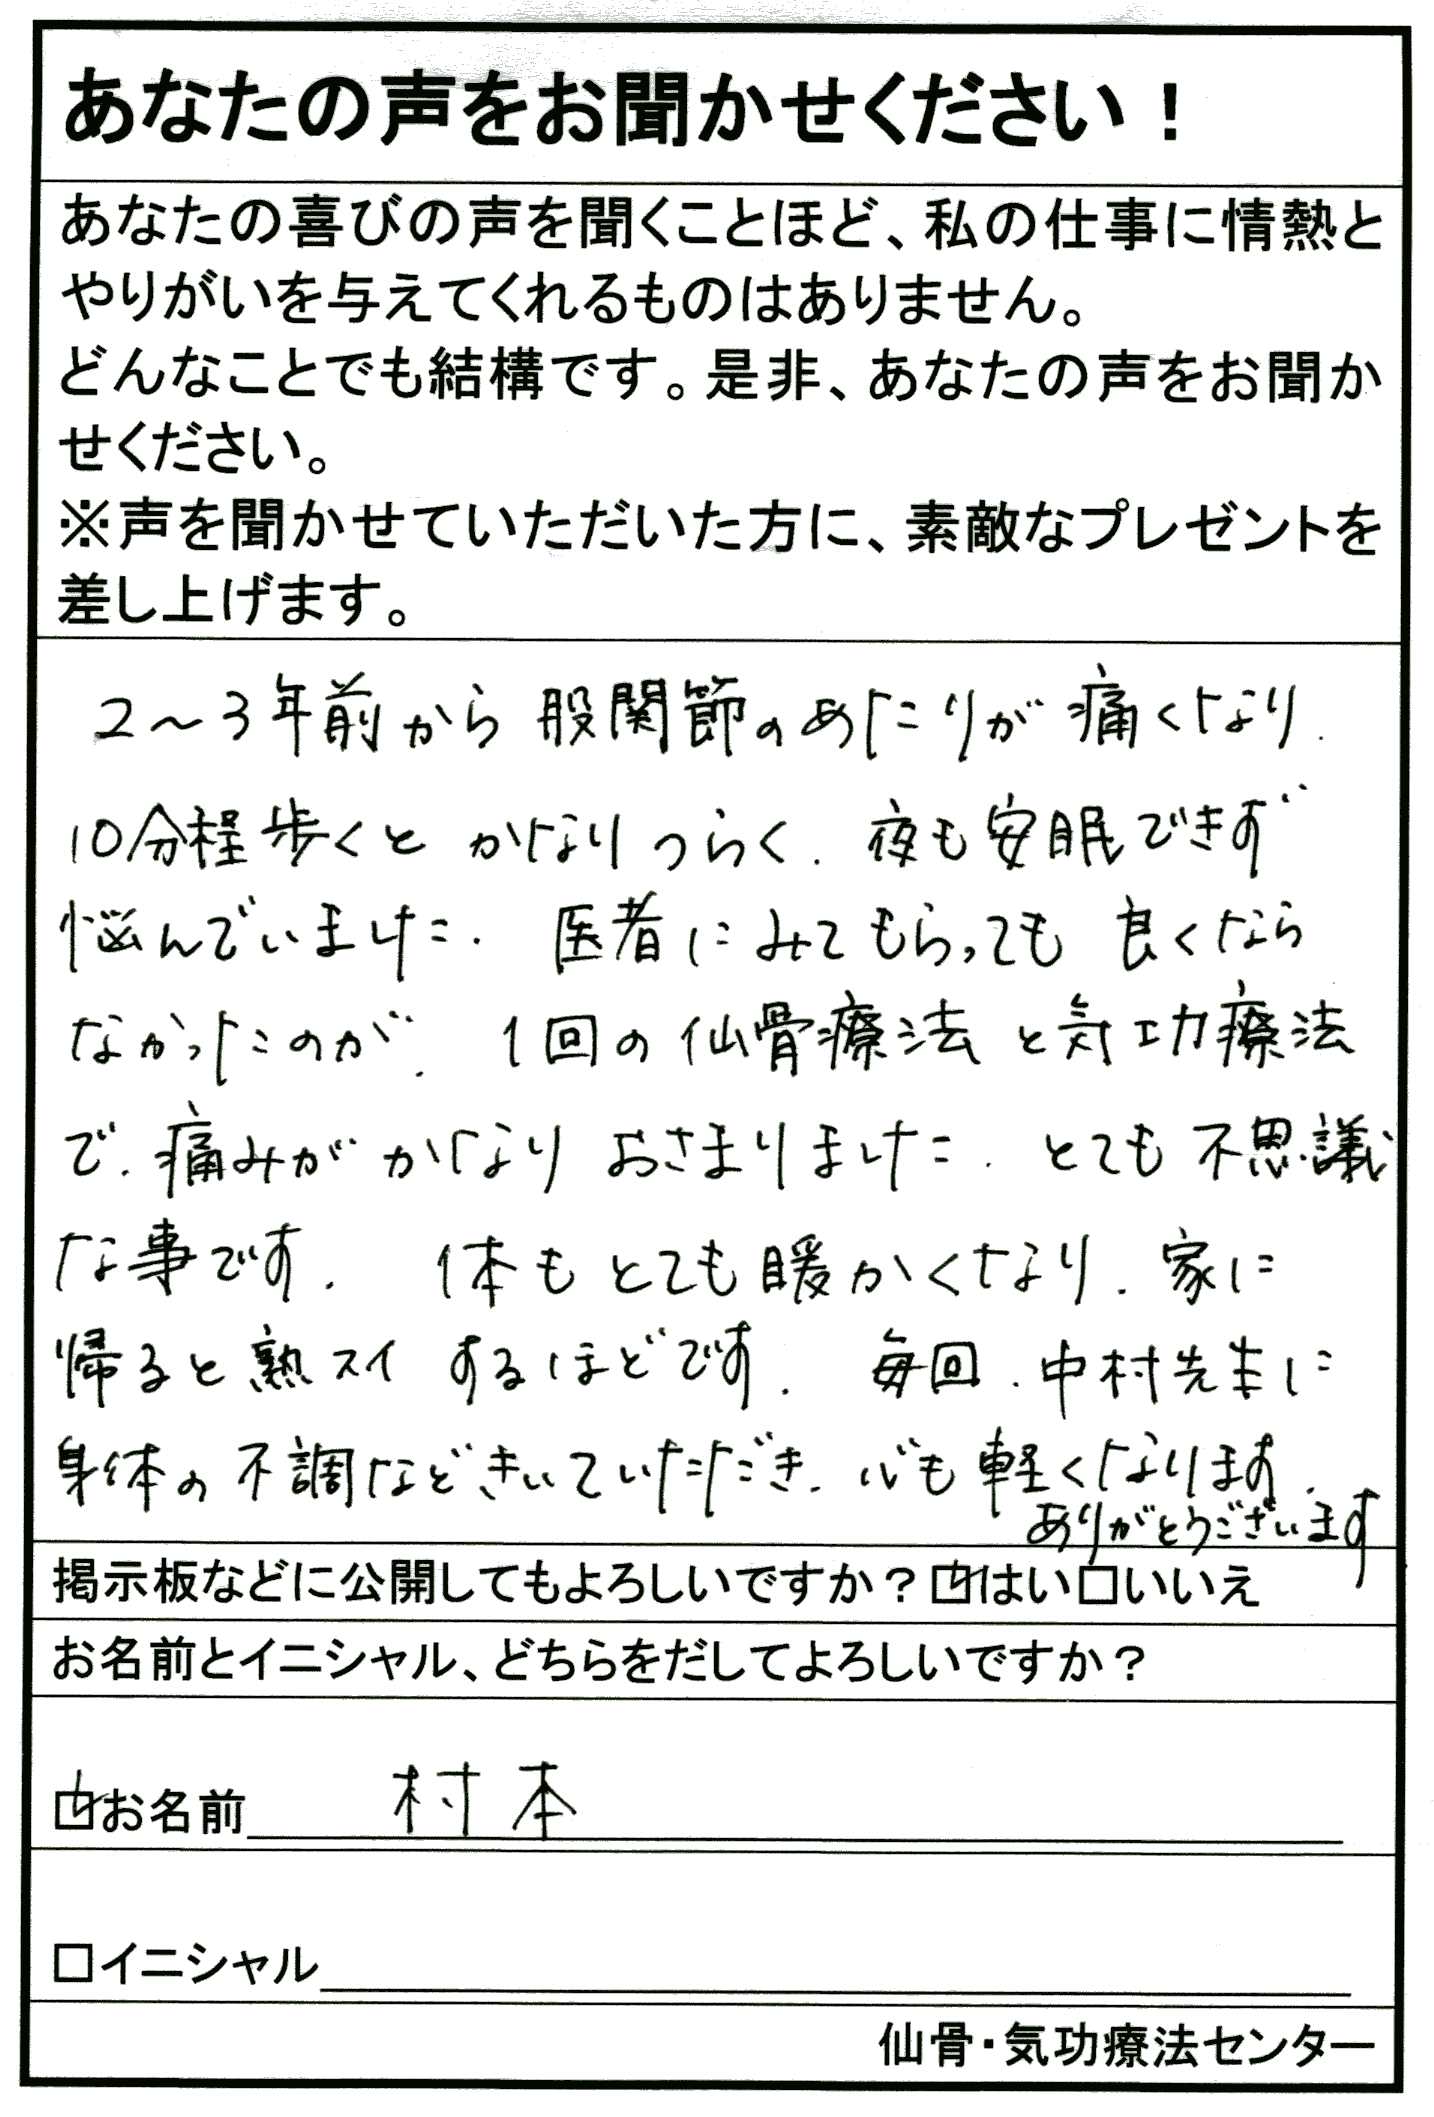 あなたの声をお聞かせください！
あなたの喜びの声を聞くことほど、私の仕事に情熱と
やりがいを与えてくれるものはありません。
どんなことでも結構です。是非、あなたの声をお聞か
せください。
※声を聞かせていただいた方に、素敵なプレゼントを
差し上げます。
2〜3年前から股関節のあたりが痛くなり.
10分程歩くとかなりつらく. 夜も安眠できず
悩んでいました. 医者にみてもらっても良くなら
なかったのが. 1回の仙骨療法と気功療法
で. 痛みがかなりおさまりました. とても不思議
な事です. 体もとても暖かくなり. 家に
帰ると熟スイするほどです. 毎回. 中村先生に
身体の不調などきいていただき. 心も軽くなります.
ありがとうございます
掲示板などに公開してもよろしいですか？☑はい□いいえ
お名前とイニシャル、どちらをだしてよろしいですか？
☑お名前 村本
□イニシャル
仙骨・気功療法センター